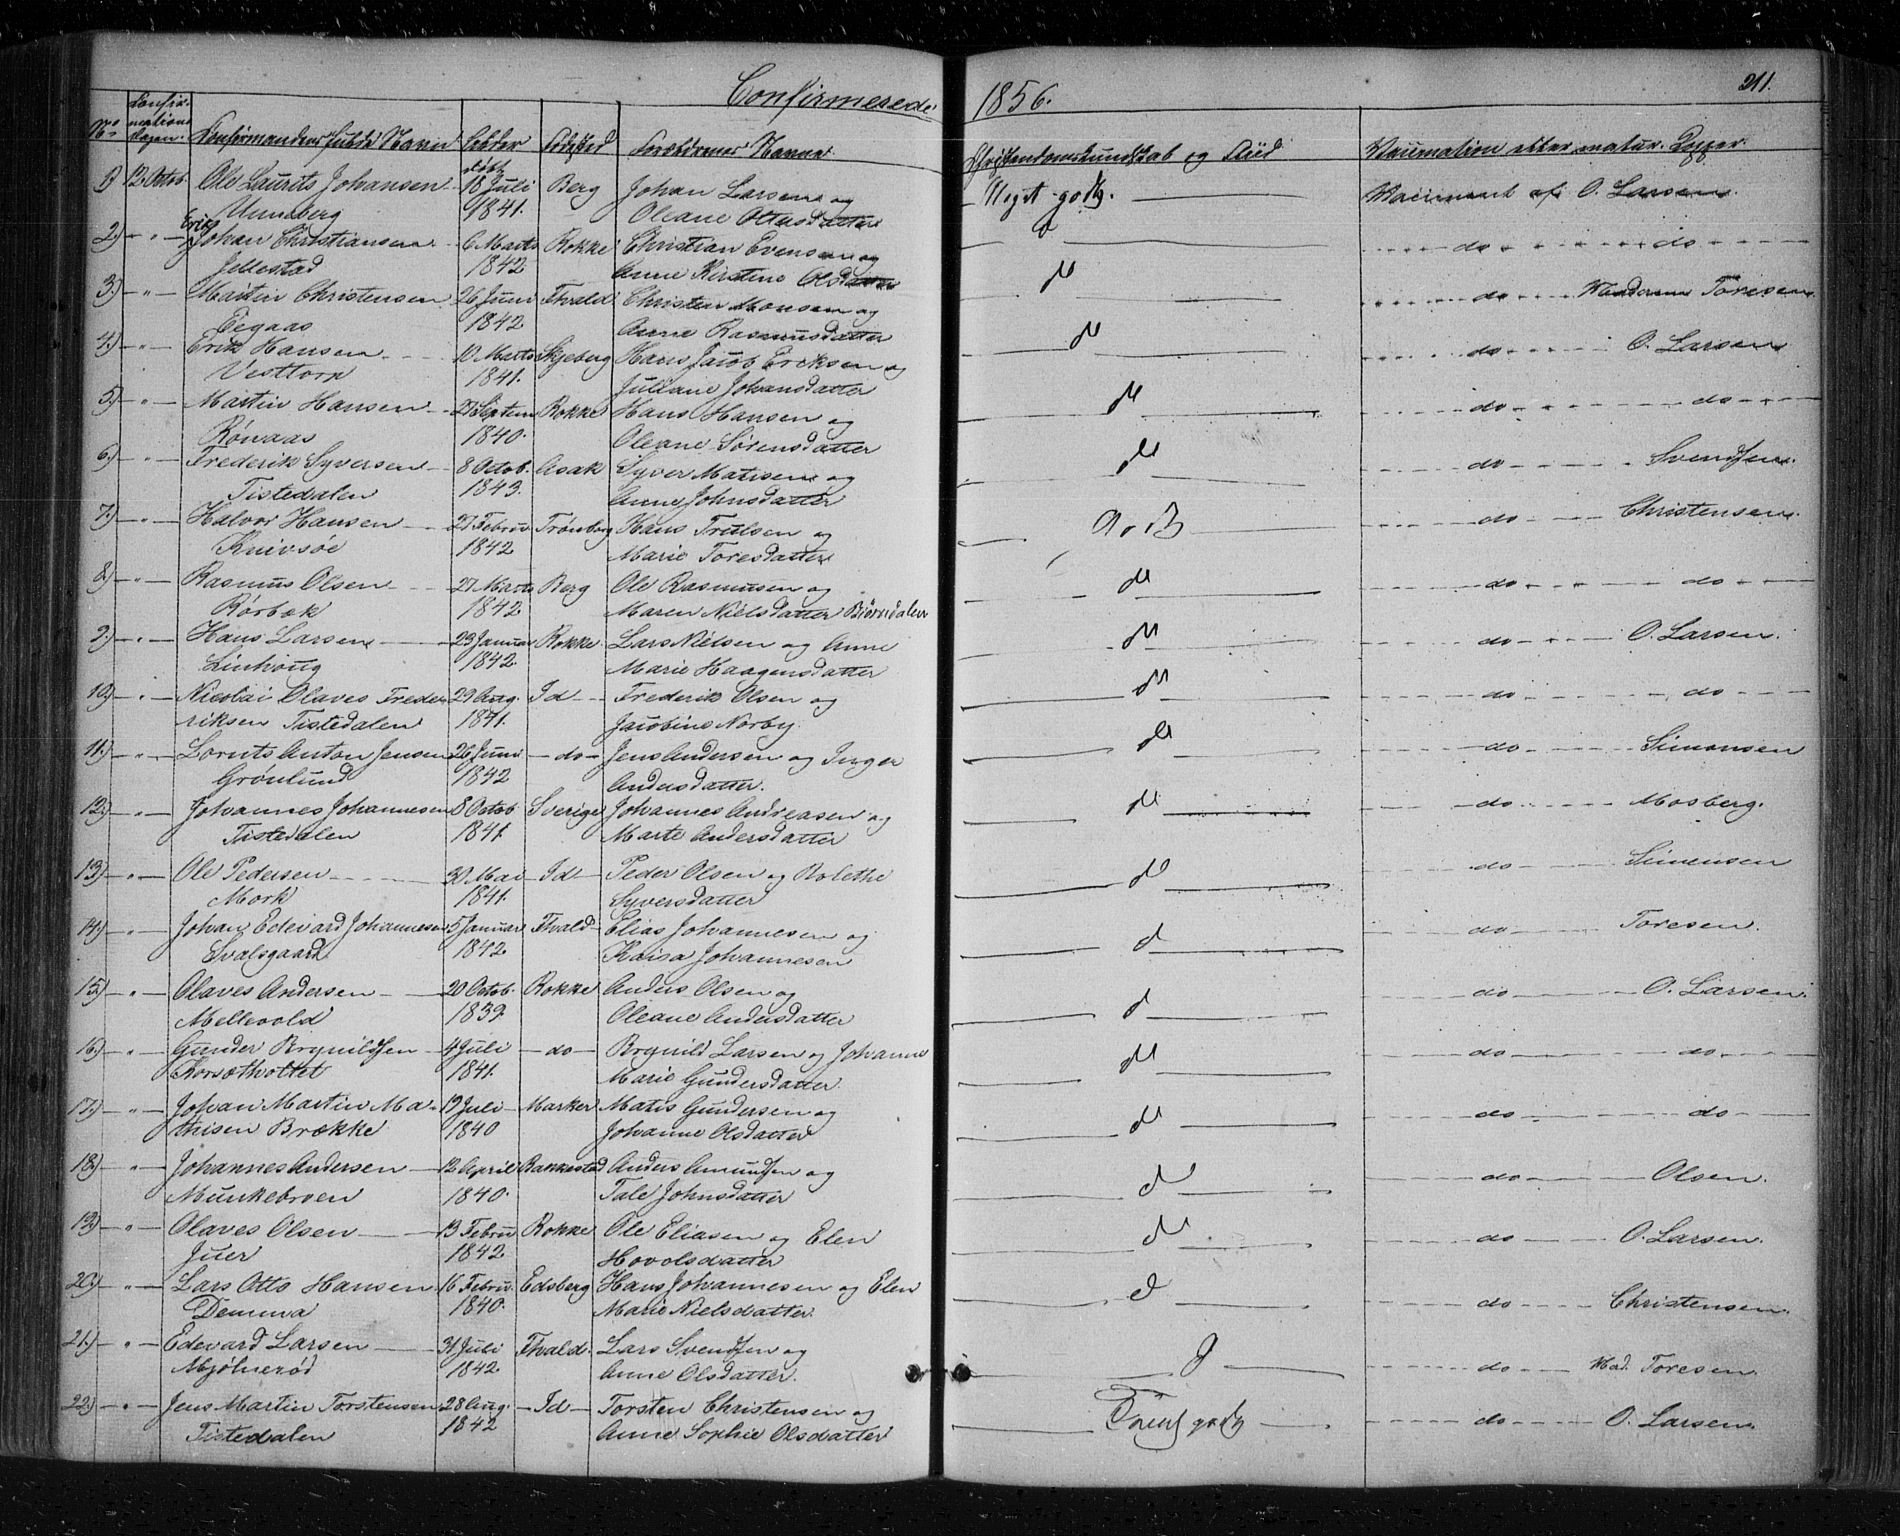 Confirmerede 1856.
211.
No Confirmationsdagen. Confirmandens fulde Navn Alder Fødested Forældrenes Navne Christendomskundskab og Flid Vaccination eller natur. Kopper.
1) 12 Octob Ole Laurits Johansen født 18 Juli Berg Johan Larsen og Meget godt. Vaccineret af O. Larsen.
Unneberg 1841. Oleane Ottersdatter
2) " Eric Johan Christiansen 6 Marts Rokke Christian Evensen og d do do
Jellestad 1842 Anne Kirstine Olsdatter
3) " Martin Christensen 26 Juni Thvald Christen Monsen og do do Madame Toresen.
Eegaas 1842 Anne Rasmusdatter
4) " Erik Hansen 10 Marts Skjeberg Hans Jacob Ericksen og do do O. Larsen
Vesttorp 1841. Juliane Johansdatter
5) " Martin Hansen 27 Septem Rokke Hans Hansen og do do do
Rønaas 1840. Oleane Sørensdatter
6) " Frederik Syversen 8 Octob. Asak Syver Matisen og do do Svendsen.
Tistedalen 1843. Anne Johnsdatter
7) " Halvor Hansen 27 Febru Trønborg Hans Trulsen og Godt do Christensen.
Knivsøe 1842 Marie Toresdatter
8) " Rasmus Olsen 27 Marts Berg Ole Rasmusen og do do do
Rørbæk 1842 Maren Nielsdatter Bjørndalen
9) " Hans Larsen 23 Januar Rokke Lars Nilsen og Anne do do O. Larsen.
Linhoug 1842. Marie Haagensdatter
10) " Nicolai Olaves Frede- 29 Aug. Id Frederik Olsen og do do do
riksen Tistedalen 1841. Jacobine Norby.
11) " Lornts Anton Jensen 26 Juni do Jens Andersen og Inger do do Simonsen
Grønlund 1842 Andersdatter.
12) " Johannes Johannesen 8 Octob Sverige Johannes Andreasen og do do Mosberg.
Tistedalen 1841. Marte Andersdatter
13) " Ole Pedersen 30 Mai Id Peder Olsen og Bolethe do do Simensen
Mork 1841. Syversdatter
14) " Johan Edevard Johannesen 5 Januar Thvald Elias Johannesen og d do Toresen.
Svalsgaard 1842 Kaisa Johannesen
15) " Olaves Andersen 20 Octob. Rokke Anders Olsen og d do O. Larsen.
Mellevold 1839. Oleane Andersdatter
16) " Gunder Brynildsen 4 Juli do Brynild Larsen og Johanne do do do
Korsætholtet 1841. Marie Gundersdatter
17) " Johan Martin Ma- 19 Juli Marker Matis Gundersen og do do do
thisen Brække 1840 Johanne Olsdatter
18) " Johannes Andersen 12 April Bakkestad Anders Amundsen og d do Olsen.
Munkebroen 1840. Tale Johnsdatter
19) " Olaves Olsen 13 Febru Rokke Ole Eliasen og Elen do do O. Larsen.
Juer 1842 Hovolsdatter
20) " Lars Otto Hansen 16 Febru Edsberg Hans Johannesen og Elen d do Christensen.
Demma 1840. Marie Nielsdatter.
21) " Edevard Larsen 31 Juli Thvald. Lars Svendsen og do Mad. Toresen.
Mjølnerød 1842 Anne Olsdatter.
22) " Jens Martin Torstensen 28 Aug. Id Torsten Christensen og Temel godt do O. Larsen.
Tistedalen 1842 Anne Sophie Olsdatter